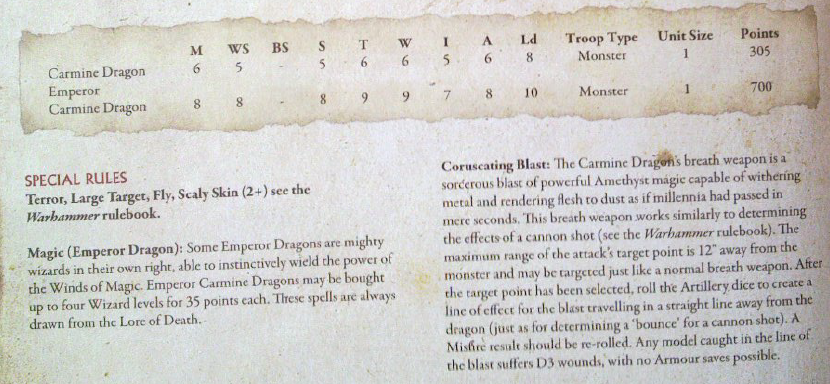 M WS BS S T W I A Ld Troop Type Unit Size Points
Carmine Dragon 6 5 - 5 6 6 5 6 8 Monster 1 305
Emperor
Carmine Dragon 8 8 - 8 9 9 7 8 10 Monster 1 700
SPECIAL RULES
Terror, Large Target, Fly, Scaly Skin (2+) see the
Warhammer rulebook.
Magic (Emperor Dragon): Some Emperor Dragons are mighty
wizards in their own right, able to instinctively wield the power of
the Winds of Magic. Emperor Carmine Dragons may be bought
up to four Wizard levels for 35 points each. These spells are always
drawn from the Lore of Death.
Coruscating Blast: The Carmine Dragon's breath weapon is a
sorcerous blast of powerful Amethyst magic capable of withering
metal and rendering flesh to dust as if millennia had passed in
mere seconds. This breath weapon works similarly to determining
the effects of a cannon shot (see the Warhammer rulebook). The
maximum range of the attack's target point is 12" away from the
monster and may be targeted just like a normal breath weapon. After
the target point has been selected, roll the Artillery dice to create a
line of effect for the blast travelling in a straight line away from the
dragon (just as for determining a 'bounce' for a cannon shot). A
Misfire result should be re-rolled. Any model caught in the line of
the blast suffers D3 wounds, with no Armour saves possible.